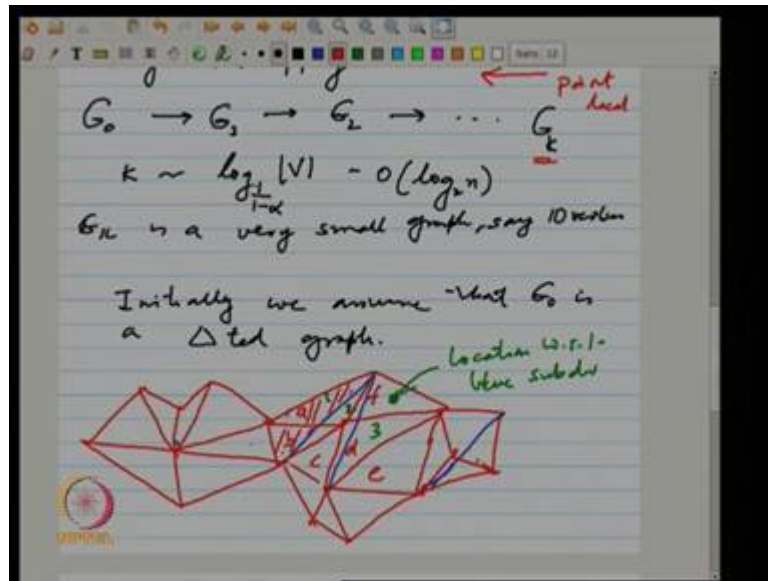 point
local
G₀ → G₁ → G₂ → ... G_k
k ~ log_{1/(1-α)} |V| - O(log₂ n)
G_k is a very small graph, say 10
Initially we assume that G₀ is
a Δted graph.
Location w.r.t.
blue subdiv
a 1 2 f
b 3
c d
e